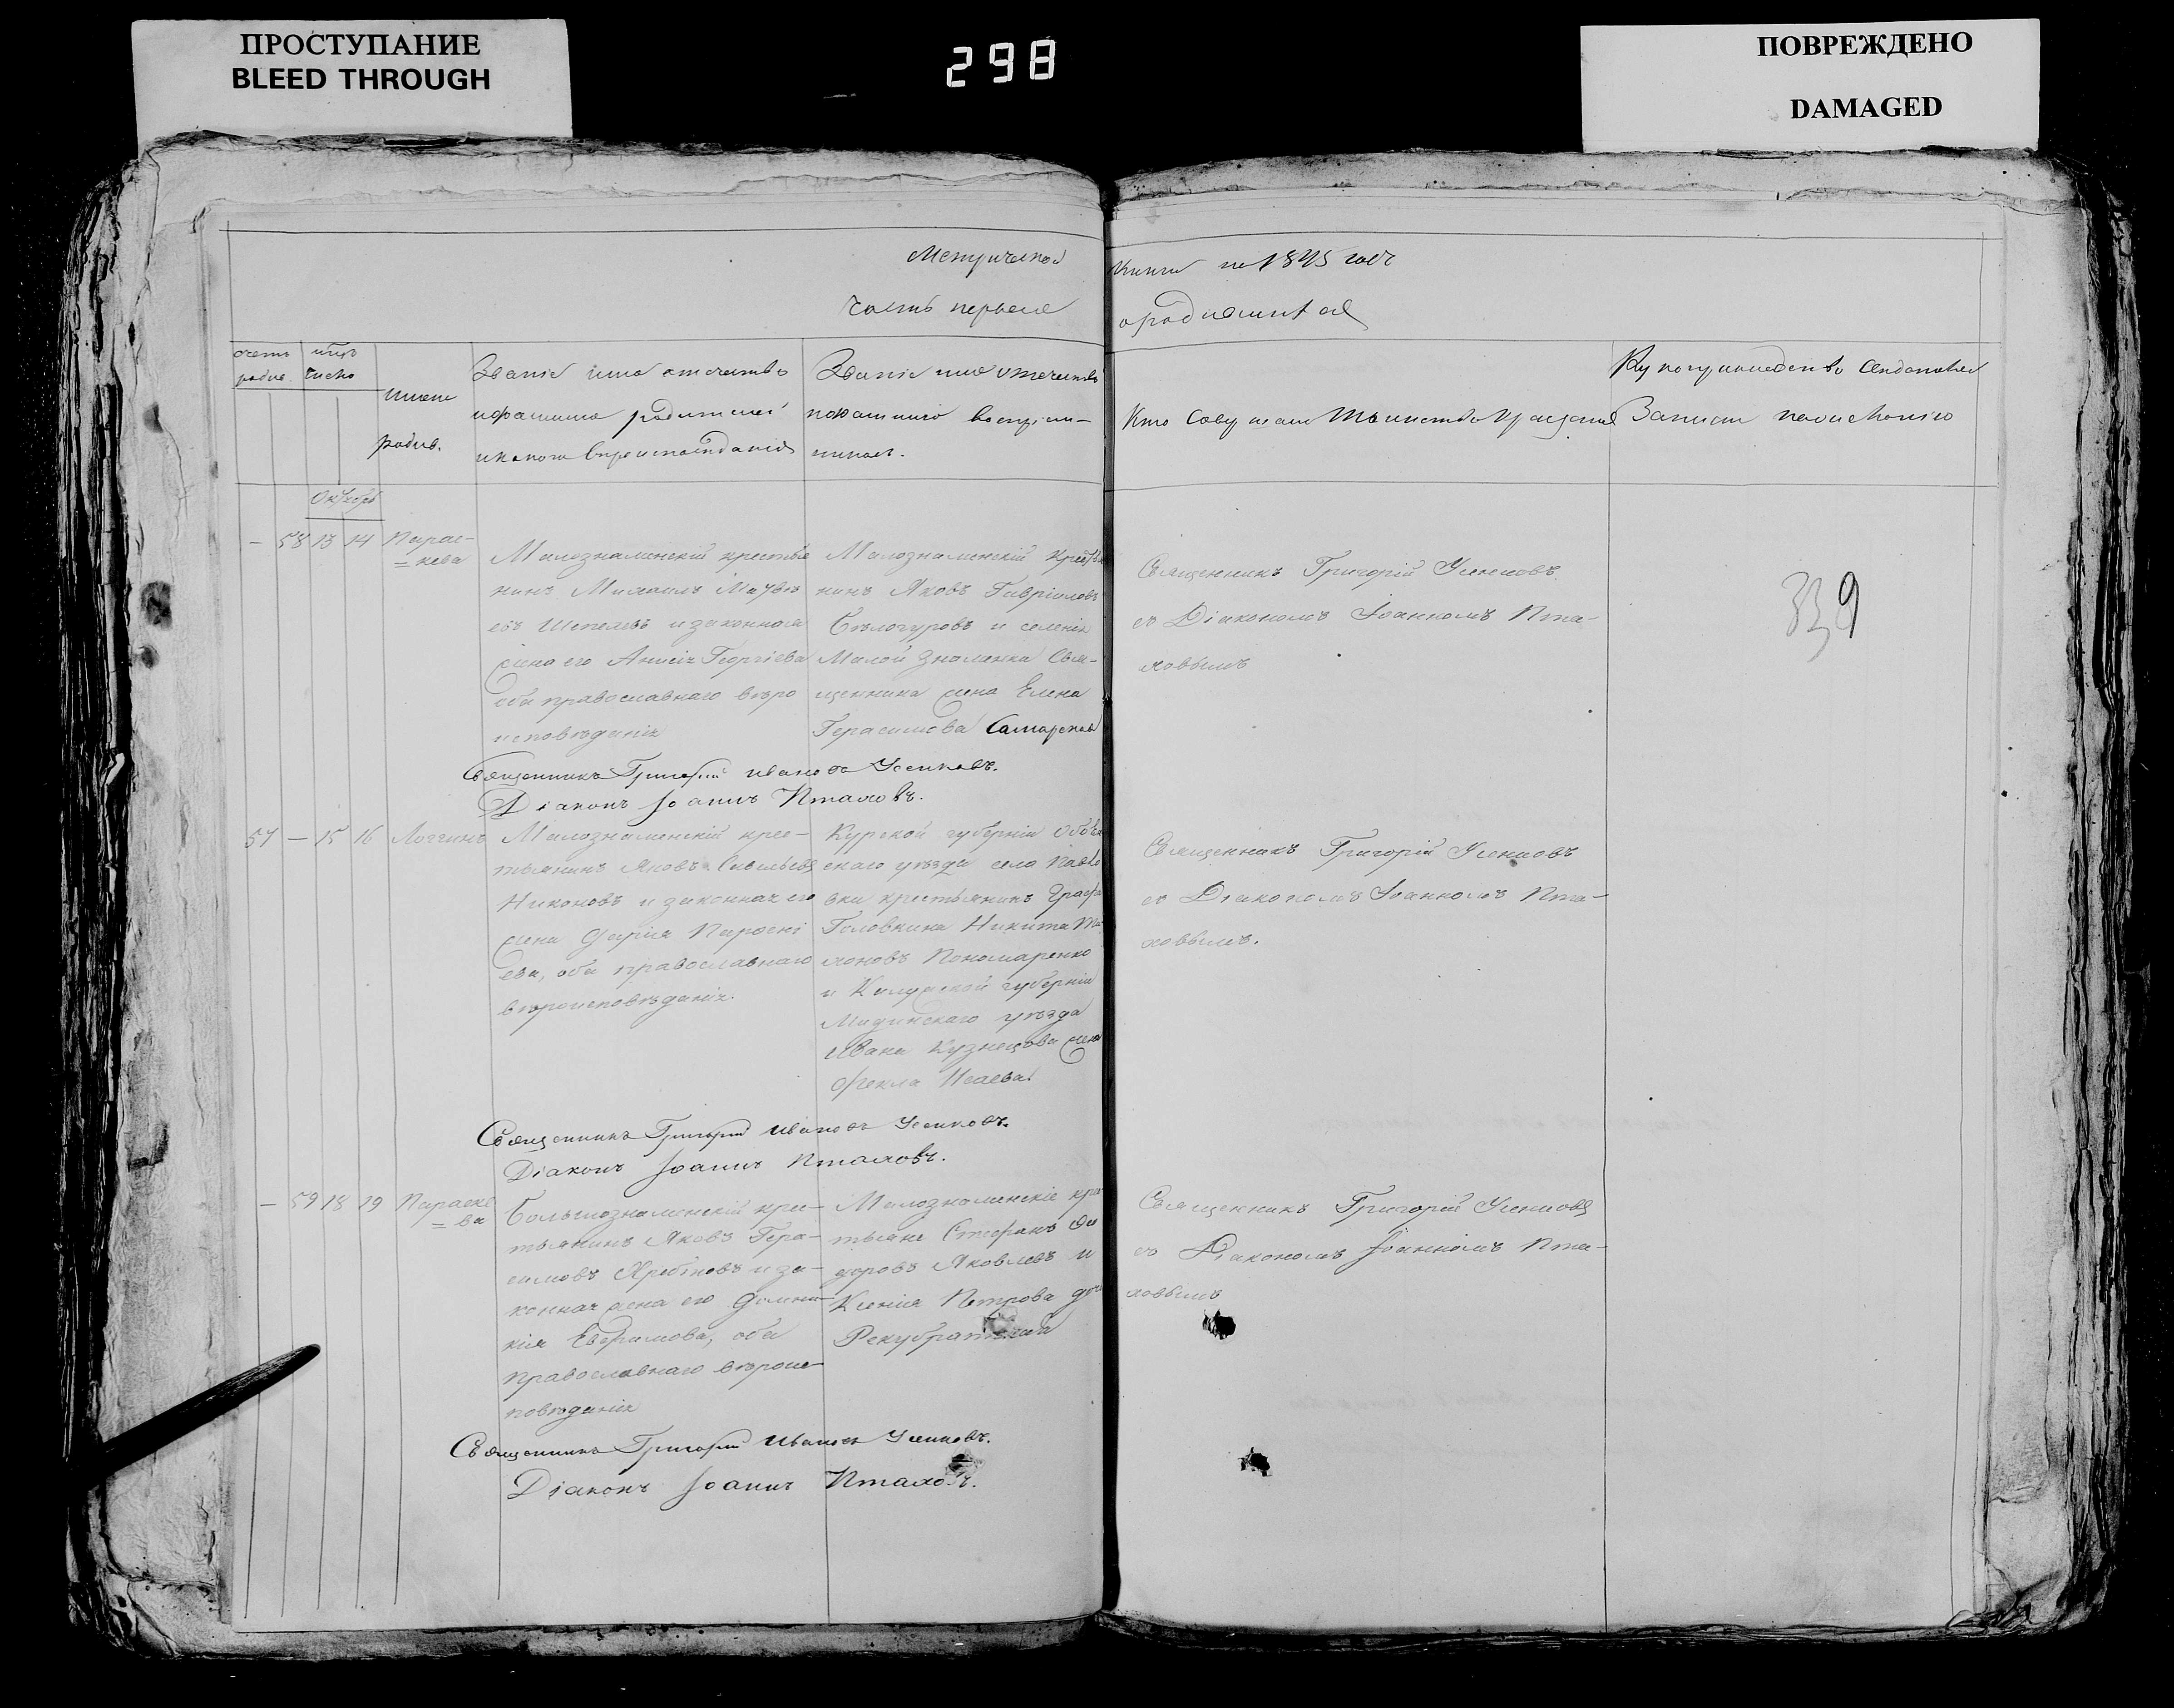 ПРОСТУПАНИЕ
BLEED THROUGH
298
ПОВРЕЖДЕНО
DAMAGED
Метрической
Книги на 1845 годъ
Часть первая
о родившихся
счетъ родив.
число
имена родив.
Званіе имя отчество
и фамилія родителей
и какого вѣроисповѣданія
Званіе имя отчество
и фамилія воспріем-
никовъ.
Кто совершалъ таинство крещенія
Рукоприкладство свидѣтелей
записи по желанію
Октябрь
— 58 13 14
Парас-
= кева
Малознаменскій крестья
нинъ Михаилъ Матвѣ
евъ Шепелевъ и законная
жена его Анисія Георгіева
оба православнаго вѣро
исповѣданія
Малознаменскій крестья
нинъ Яковъ Гавріиловъ
Бѣлогуровъ и селенія
Малой Знаменки Свя-
щенника жена Елена
Герасимова Самарская
Священникъ Григорій Усенковъ
съ Діакономъ Іоанномъ Пта-
ховымъ
339
Священникъ Григорій Ивановъ Усенковъ.
Діаконъ Іоаннъ Птаховъ.
57 — 15 16
Логгинъ
Малознаменскій крес-
тьянинъ Яковъ Савельевъ
Никоновъ и законная его
жена Дарія Парѳені
ева, оба православнаго
вѣроисповѣданія.
Курской губерніи Обоян
скаго уѣзда села Павло
вки крестьянинъ Графа
Головкина Никита
Пономаренко
и Калужской губерніи
Мединскаго уѣзда
Ивана Кузнецова жена
Ѳекла Исаева.
Священникъ Григорій Усенковъ
съ Діакономъ Іоанномъ Пта-
ховымъ.
Священникъ Григорій Ивановъ Усенковъ.
Діаконъ Іоаннъ Птаховъ.
— 59 18 19
Параске
= ва
Большознаменскій крес-
тьянинъ Яковъ Гера-
симовъ Хребтовъ и за-
конная жена его Домни-
кія Евфимова, оба
православнаго вѣроис-
повѣданія
Малознаменскіе крес
тьяне Стефанъ Ѳе
доровъ Яковлевъ и
Ксенія Петрова дочь
Священникъ Григорій Усенковъ
съ Діакономъ Іоанномъ Пта-
ховымъ
Священникъ Григорій Ивановъ Усенковъ.
Діаконъ Іоаннъ Птаховъ.